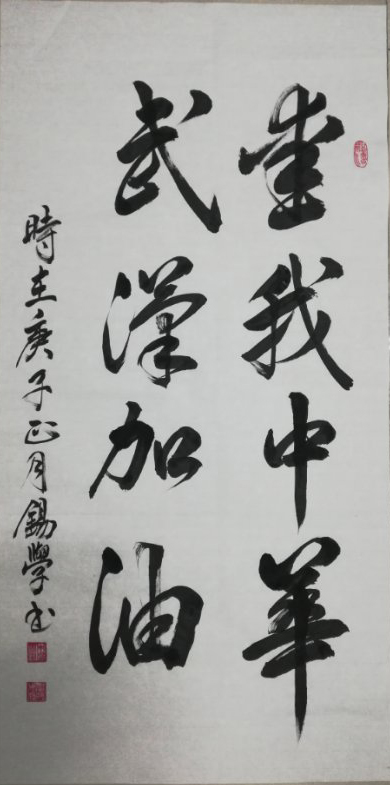 爱我中華
武漢加油
時在庚子正月錫學书